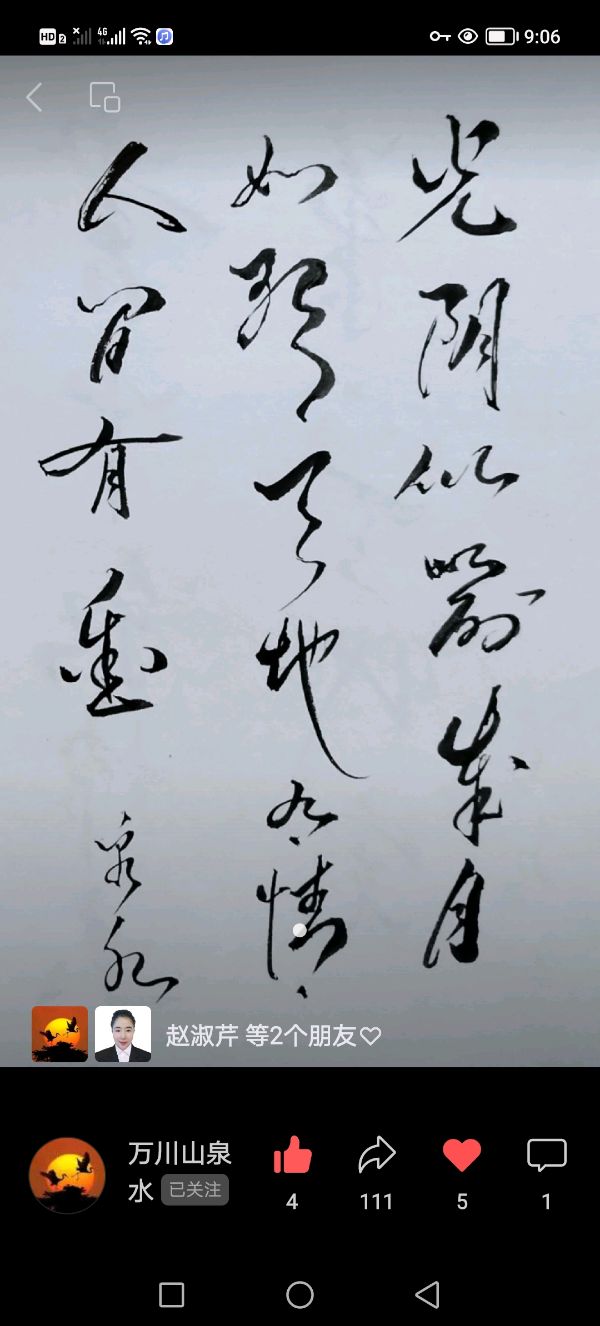 HD 2 4G 9:06
光阴似箭月
如天地情
人间有
泉水
赵淑芹 等2个朋友♡
万川山泉
水 已关注
4 111 5 1